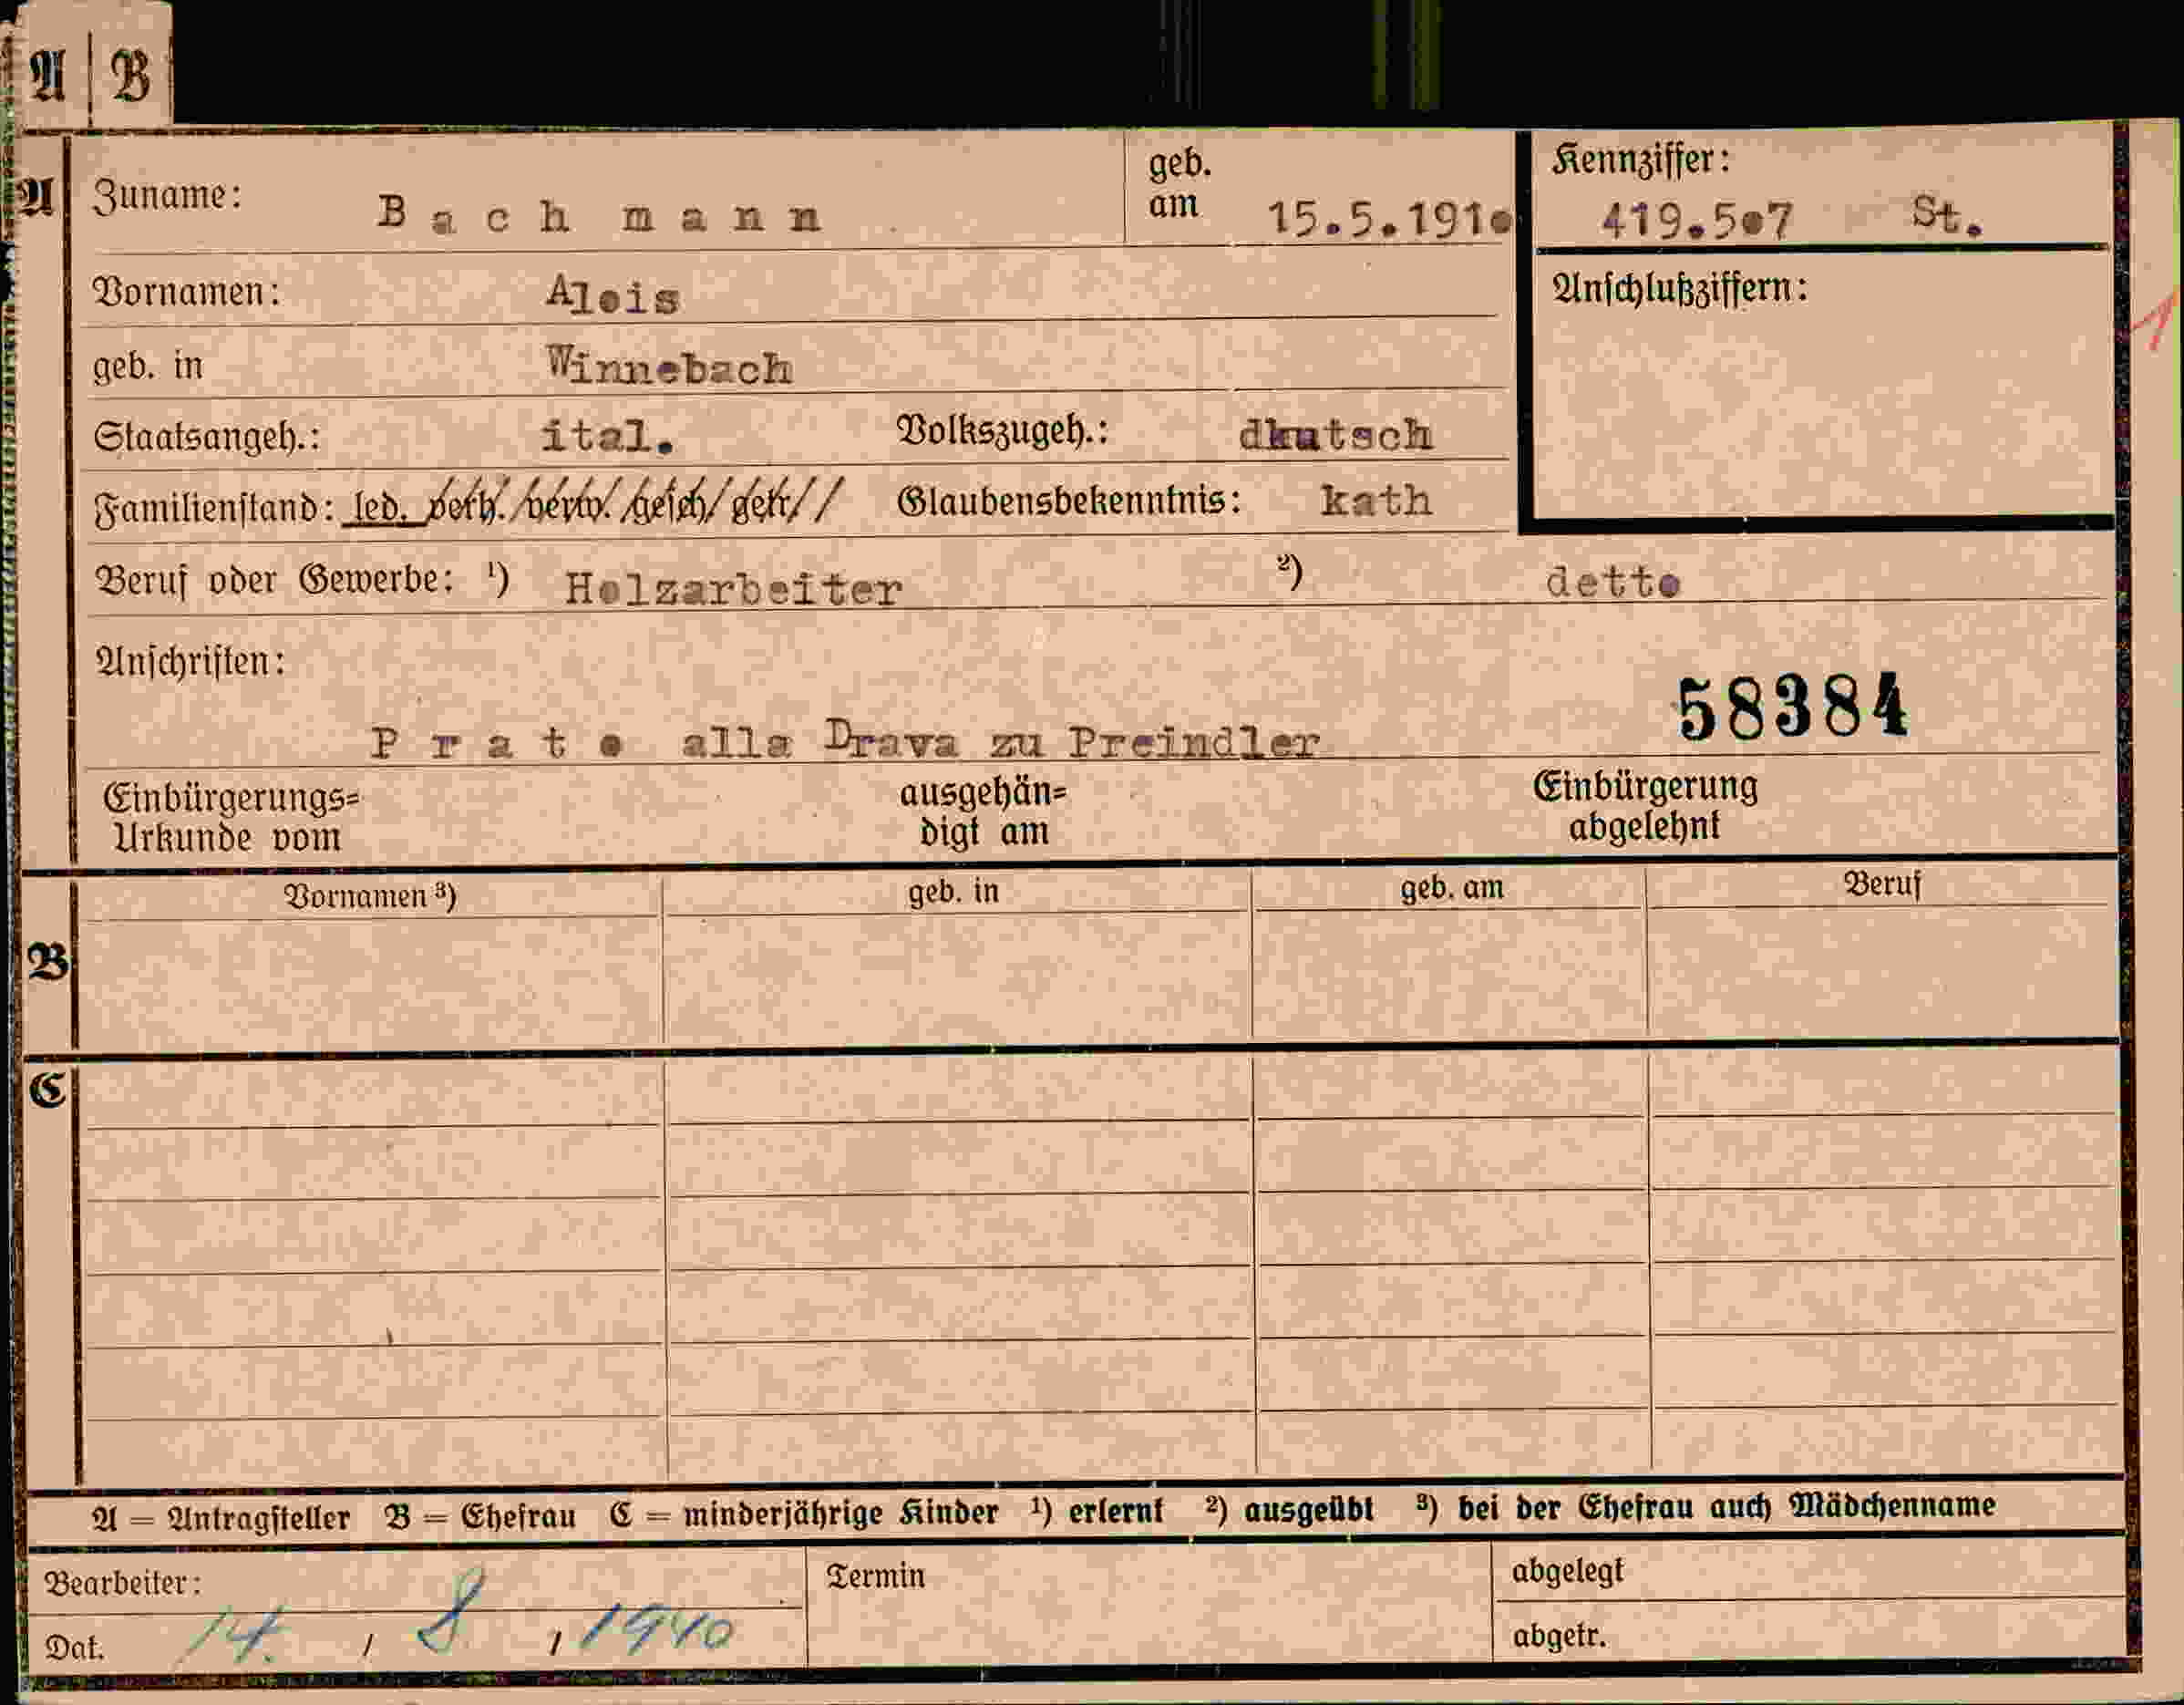 A | B
A
Zuname: Bachmann geb. am 15.5.1910 Kennziffer: 419.507 St.
Vornamen: Alois Anschlußziffern:
1
geb. in Winnebach
Staatsangeh.: ital. Volkszugeh.: deutsch
Familienstand: led. verh./verw./gesch/getr// Glaubensbekenntnis: kath
Beruf oder Gewerbe: ¹) Holzarbeiter ²) detto
Anschriften:
58384
Prato alla Drava zu Preindler
Einbürgerungs= ausgehän= Einbürgerung
Urkunde vom digt am abgelehnt
Vornamen ³) geb. in geb. am Beruf
B
C
A = Antragsteller B = Ehefrau C = minderjährige Kinder ¹) erlernt ²) ausgeübt ³) bei der Ehefrau auch Mädchenname
Bearbeiter: Termin abgelegt
Dat. 14. / 8 / 1940 abgetr.